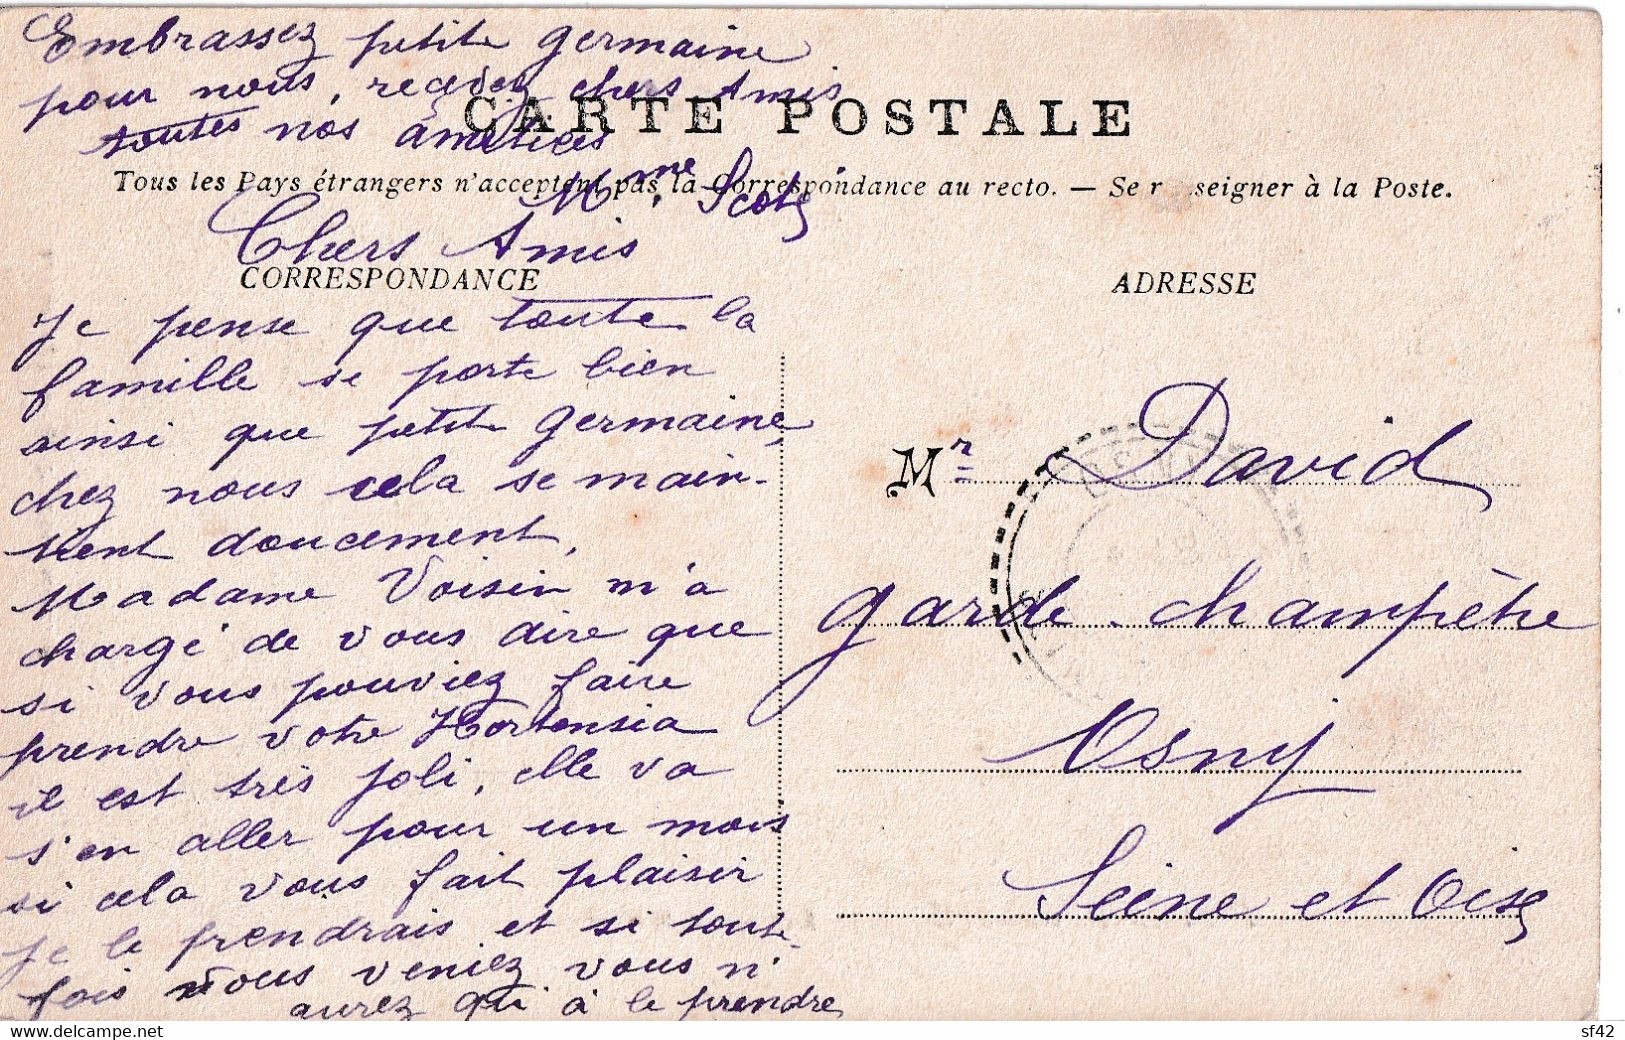 Embrassez petite germaine
pour nous, recevez chers Amis
toutes nos amitiées
Mme. Scot
CARTE POSTALE
Tous les Pays étrangers n'acceptent pas la Correspondance au recto. — Se r seigner à la Poste.
Chers Amis
CORRESPONDANCE
Je pense que toute la
famille se porte bien
ainsi que petite germaine,
chez nous cela se main-
tient doucement,
Madame Voisin m'a
chargé de vous dire que
si vous pouviez faire
prendre votre Hortensia
il est très joli, elle va
s'en aller pour un mois
si cela vous fait plaisir
je le prendrais et si toute-
fois vous veniez vous n'
aurez qu'à le prendre
ADRESSE
Mr David
garde-champêtre
Osny
Seine et Oise
sf42